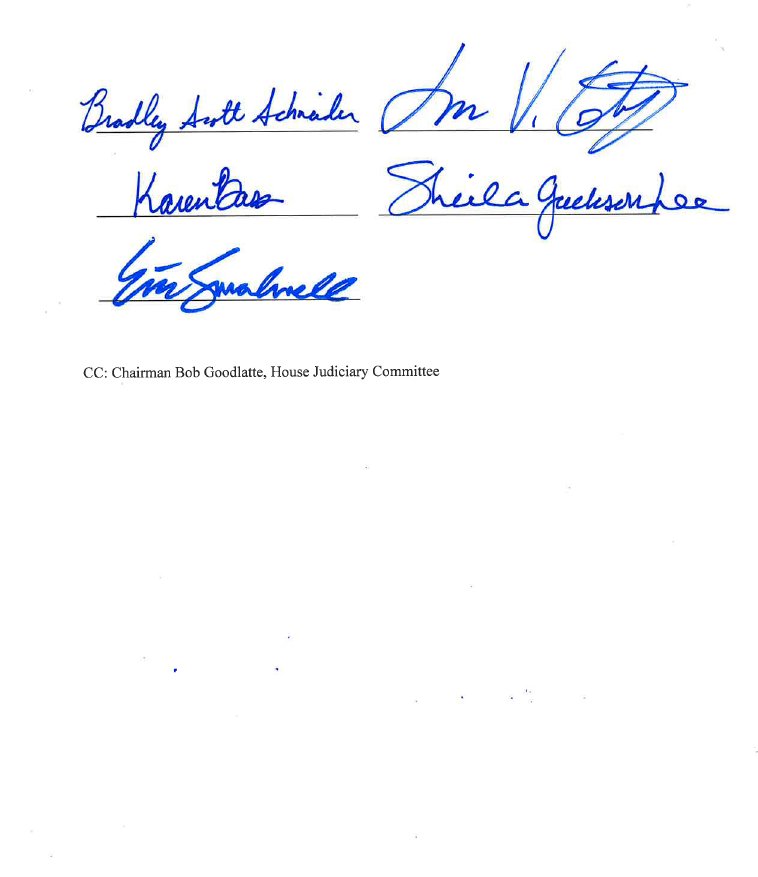 Bradley Scott Schneider
V.
Karen Bass Sheila Jackson Lee
Eric Swalwell
CC: Chairman Bob Goodlatte, House Judiciary Committee